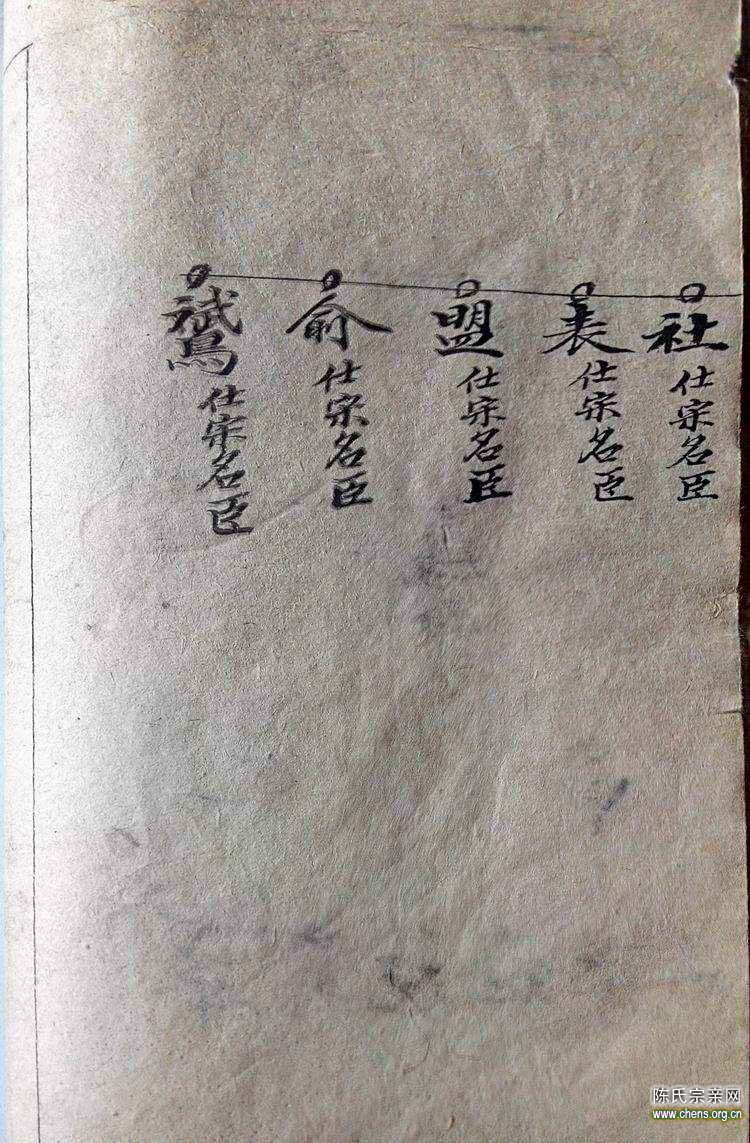 社 仕宗名臣
表 仕宗名臣
盟 仕宗名臣
俞 仕宗名臣
仕宗名臣
陈氏宗亲网
www.chens.org.cn